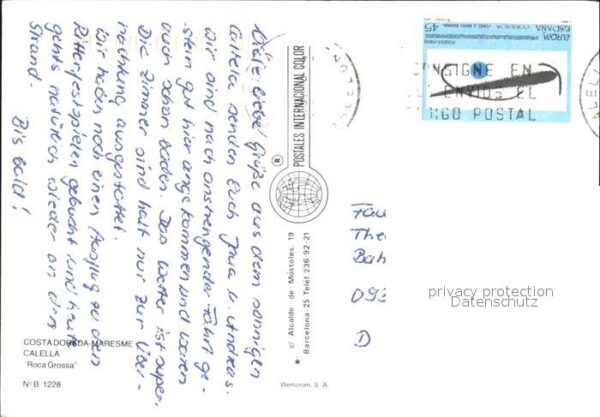 Viele liebe Grüße aus dem sonnigen
Calella senden Euch Jana u. Andreas.
Wir sind nach anstrengender Fahrt ge-
stern gut hier angekommen und waren
auch schon baden. Das Wetter ist super.
Die Zimmer sind halt nur zur Über-
nachtung ausgestattet.
Wir haben noch einen Ausflug zu den
Ritterfestspielen gebucht und heute
geht's natürlich wieder an den
Strand.
Bis bald!
COSTA DORADA-MARESME
CALELLA
"Roca Grossa"
N.º B. 1228
POSTALES INTERNACIONAL COLOR
®
* c/ Alcalde de Mostoles, 19
Barcelona-25 Teléf. 236-92-21
45
EUROPA
ESPAÑA
CONSIGNE EN
ENVIOS EL
CODIGO POSTAL
Fam
The
Bah
093
D
privacy protection
Datenschutz